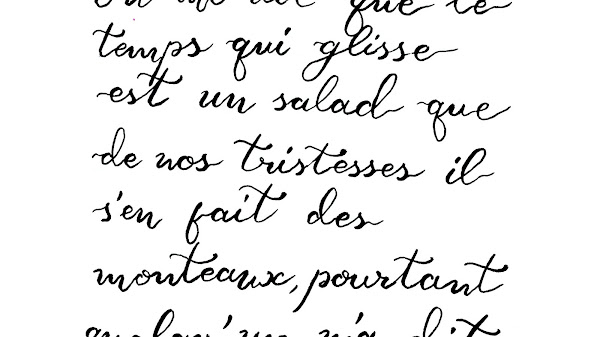 que le
temps qui glisse
est un salad que
de nos tristesses il
s'en fait des
monteaux, pourtant
quelqu'un m'a dit